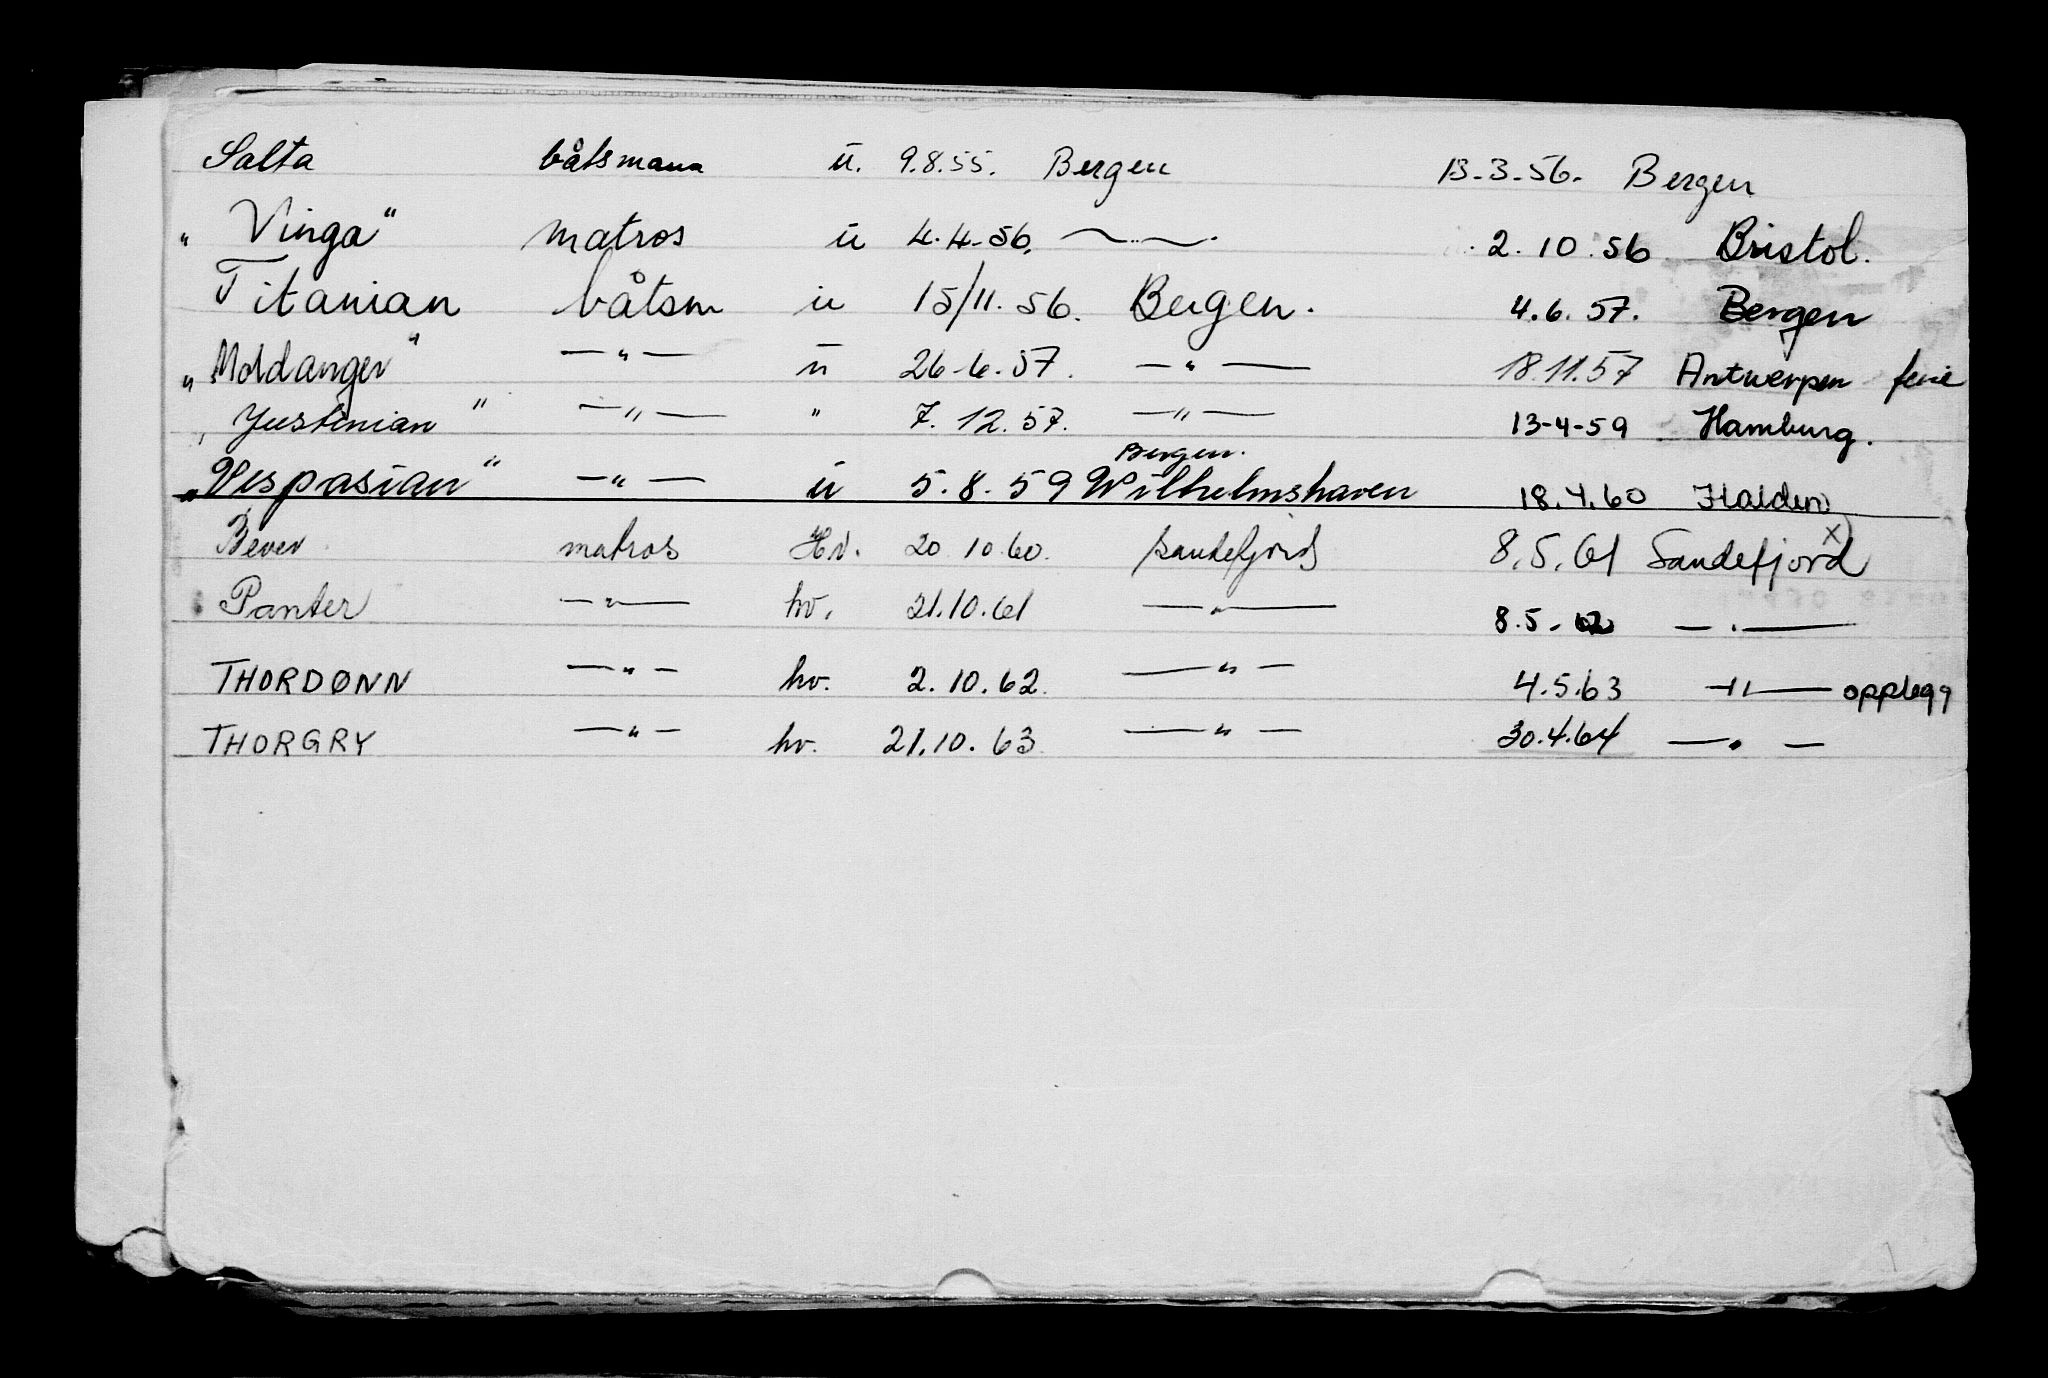 Salta båtsmann u. 9.8.55. Bergen 13-3-56. Bergen
„Vinga" matros u 4.4-56. —..— 2.10.56 Bristol.
Titanian båtsm u 15/11.56. Bergen. 4.6.57. Bergen
„Moldanger" —"— u 26-6.57. —"— 18.11.57 Antwerpen ferie
„Justinian" —"— " 7.12.57. —"— 13-4-59 Hamburg.
Bergen.
„Vespasian" —"— u 5.8.59 Wilhelmshaven 18.4.60 Halden
Bever matros Hv. 20.10.60. Sandefjord 8.5.61 Sandefjord x)
Panter —"— hv. 21.10.61 —"— 8.5-62 —"—
THORDØNN —"— hv. 2.10.62. —"— 4.5.63 —"— opplegg
THORGRY —"— hv. 21.10.63. —"— 30.4.64 —"—